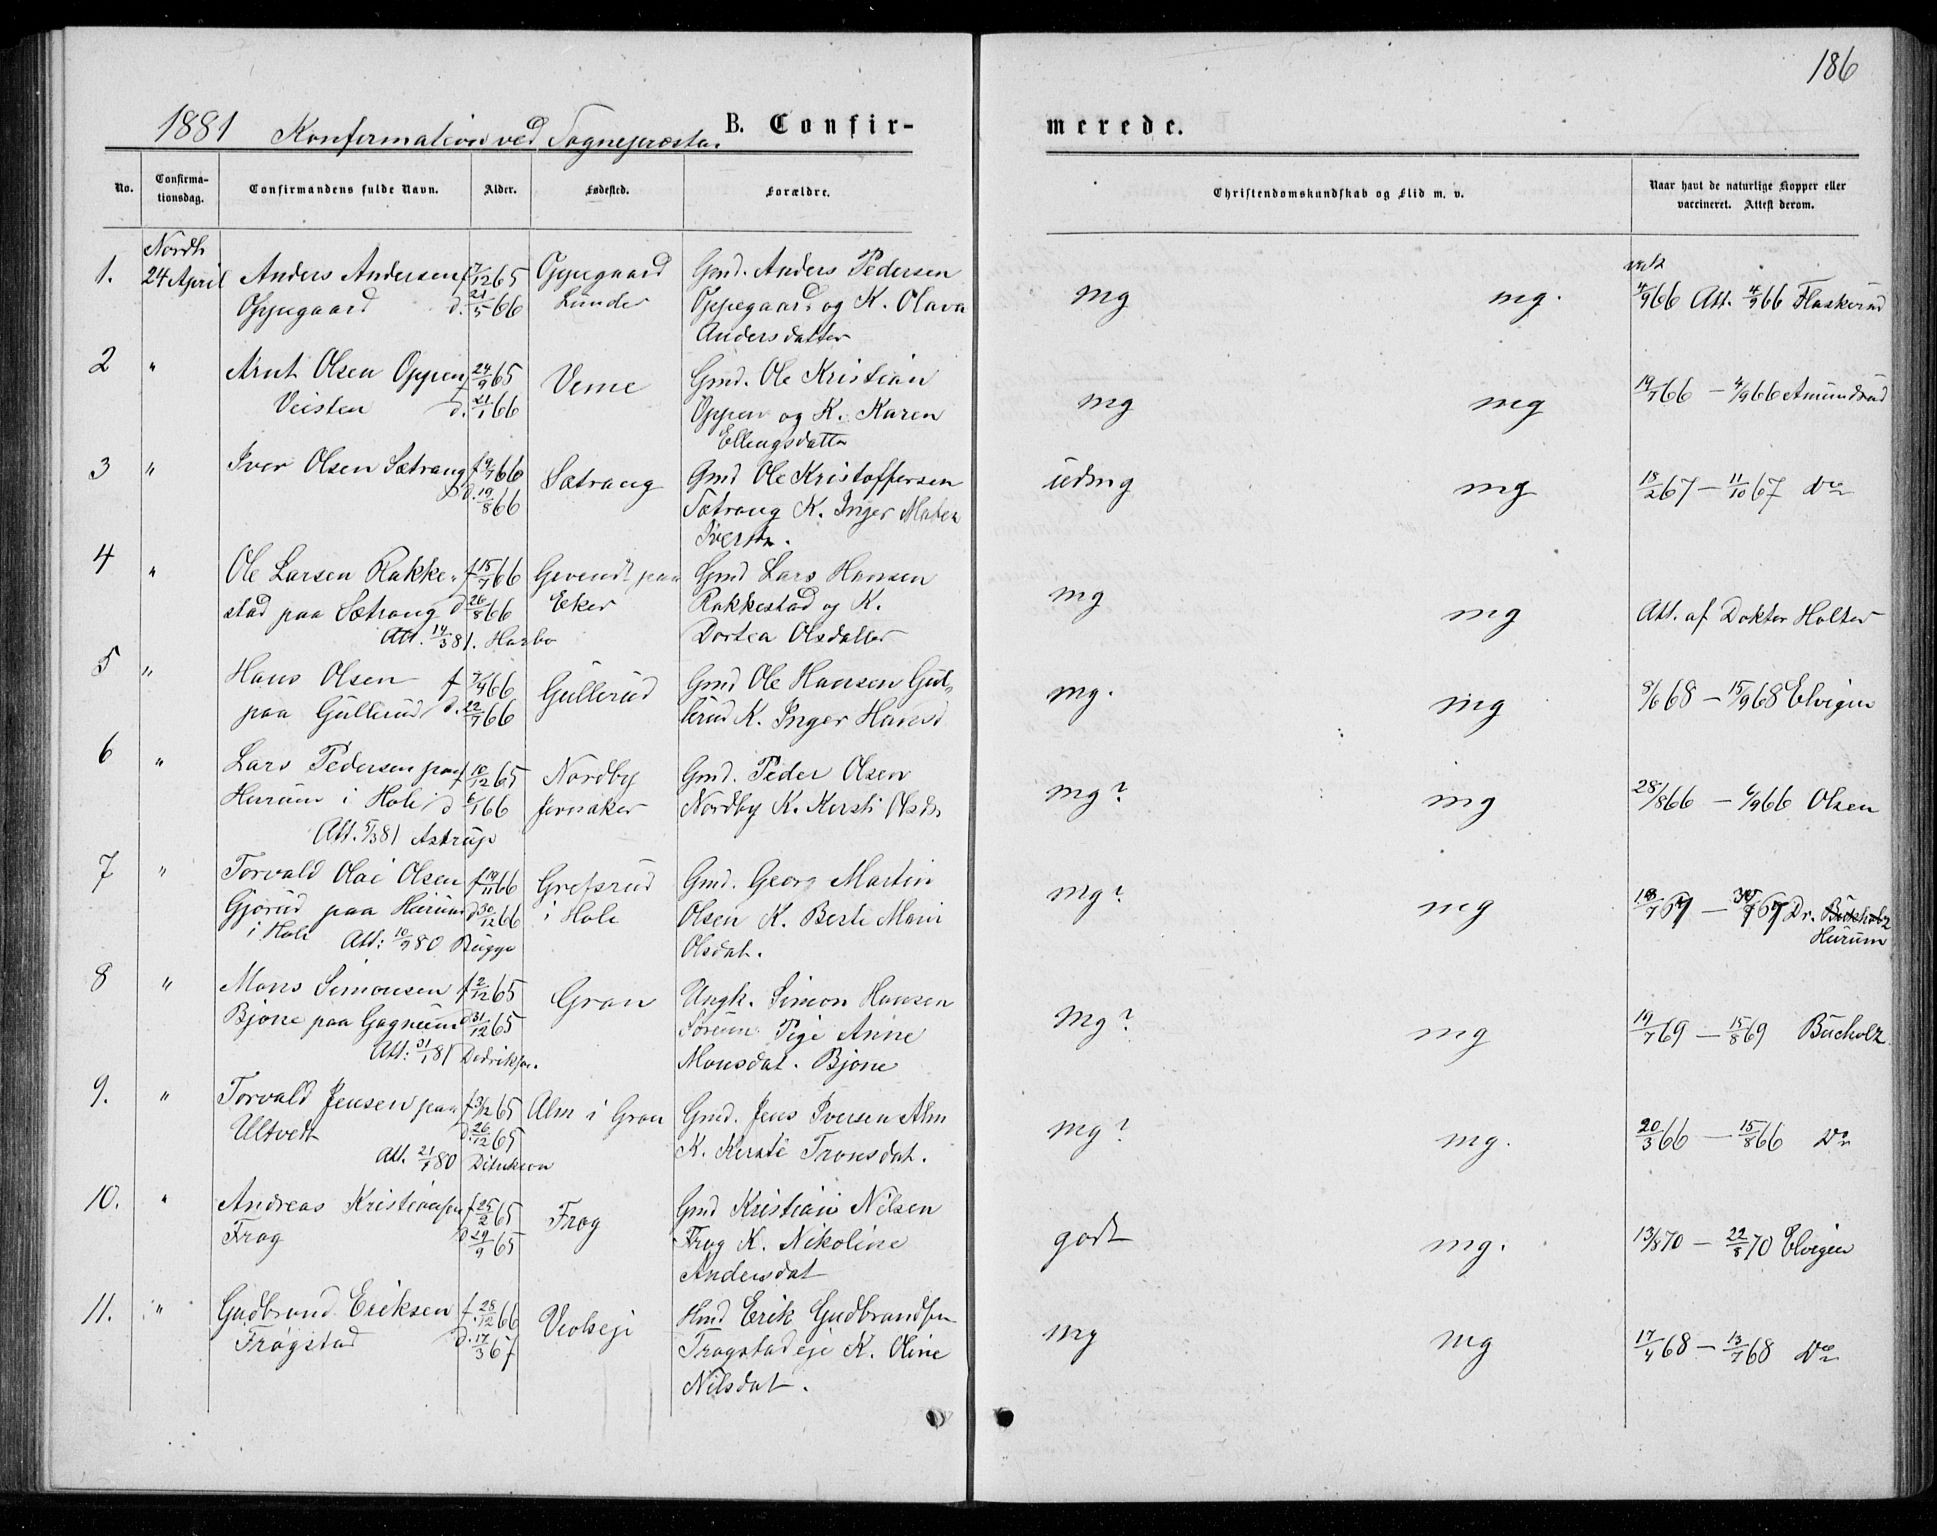 186
1881 Konfirmation ved Sognepræsten
B. Confir-
merede.
No. Confirma-tionsdag. Confirmandens fulde Navn. Alder. Fødested. Forældre. Christendomskundskab og Flid m. v. Naar havt de naturlige Kopper eller vaccineret. Attest derom.
Nordh
1. 24 April Anders Andersen f 7/12 65 Oppegaard Gmd. Anders Pedersen mg mg. 4/9 66 Att. 4/9 66 Flaskerud
Oppegaard d. 21/5 66 Lunder Oppegaard og K. Olava
Andersdatter
2 " Arnt Olsen Oppen f 24/9 65 Veme Gmd. Ole Kristian mg mg 19/7 66 — 4/9 66 Amundrud
Veisten d. 21/1 66 Oppen og K. Karen
Ellingsdatter
3 " Iver Olsen Sætrang f 9/7 66 Sætrang Gmd Ole Kristoffersen udmg mg 18/2 67 — 11/10 67 Do
d. 19/8 66 Sætrang K. Inger Maten
Iversdn.
4 " Ole Larsen Rakke- f 15/7 66 Gevendt paa Gmd Lars Hansen mg mg Att. af Doktor Holter
stad paa Sætrang d 26/8 66 Eker Rakkestad og K.
Att. 14/3 81. Harbo Dortea Olsdatter
5 " Hans Olsen f 7/4 66 Gullerud Gmd Ole Hansen Gul- mg. mg 8/6 68 — 15/9 68 Elvigen
paa Gullerud d. 22/7 66 lerud K. Inger Hansd
6 " Lars Pedersen paa f 10/12 65 Nordby Gmd. Peder Olsen mg? mg 28/8 66 — 6/9 66 Olsen
Hurum i Hole d 6/1 66 Jevnaker Nordby K. Kersti Olsdr
Att. 5/3 81 Astrup
7 " Torvald Olai Olsen f 19/11 66 Grefsrud Gmd. Georg Martin mg? mg 18/7 67 — 67 Dr. Bucholz
Gjørud paa Hurum d 30/12 66 i Hole Olsen K. Berte Marie Hurum
i Hole Att: 10/9 80 Bugge Olsdat.
8 " Mons Simonsen f 2/12 65 Gran Ungk. Simon Hansen Mg? mg 19/7 69 — 15/8 69 Bucholz
Bjone paa Gagnum d 31/12 65 Sørum Pige Anne
Att: 31/1 81 Dedriksen. Monsdat. Bjone
9. " Torvald Jensen paa f 3/12 65 Alm i Gran Gmd. Jens Iversen Alm mg? mg. 20/3 66 — 15/8 66 Do
Ultvedt d. 26/12 65 K. Kersti Tronsdat.
Att. 21/1 80 Ditrikson
10. " Andreas Kristiansen f 25/2 65 Frog Gmd Kristian Nilsen godt mg. 13/8 70 — 22/8 70 Elvigen
Frog d 29/9 65 Frog K. Nikoline
Andersdat
11. " Gudbrand Eriksen f. 28/12 66 Veolseje Hmd Erik Gudbrandsen mg mg 17/4 68 — 13/7 68 Do
Frøgstad d. 17/3 67 Frøgstadeje K. Oline
Nilsdat.